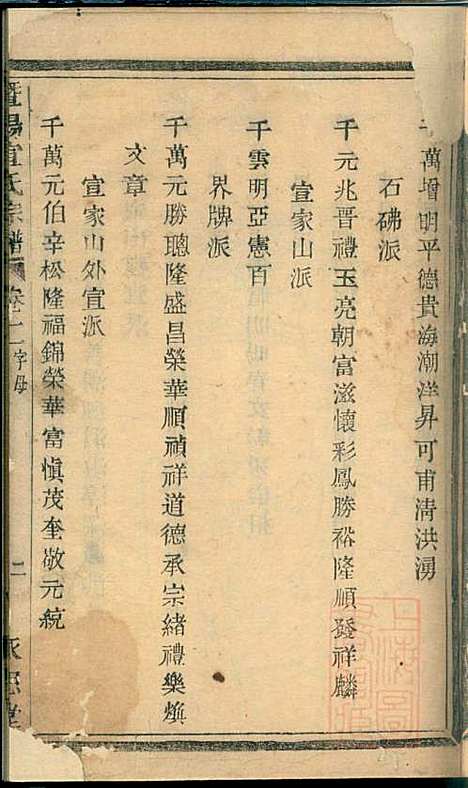 萬增明平德貴海潮洋昇可甫清洪湧
石砩派
千元兆晋禮玉亮朝富滋懷彩鳳勝裕隆順發祥麟
宣家山派
千雲明亞憲百
界牌派
千萬元勝聰隆盛昌榮華順禎祥道德承宗緒禮樂煥
文章
宣家山外宣派
千萬元伯辛松隆福錦榮華富慎茂奎敬元統
暨陽宣氏宗譜 卷二 字母 二